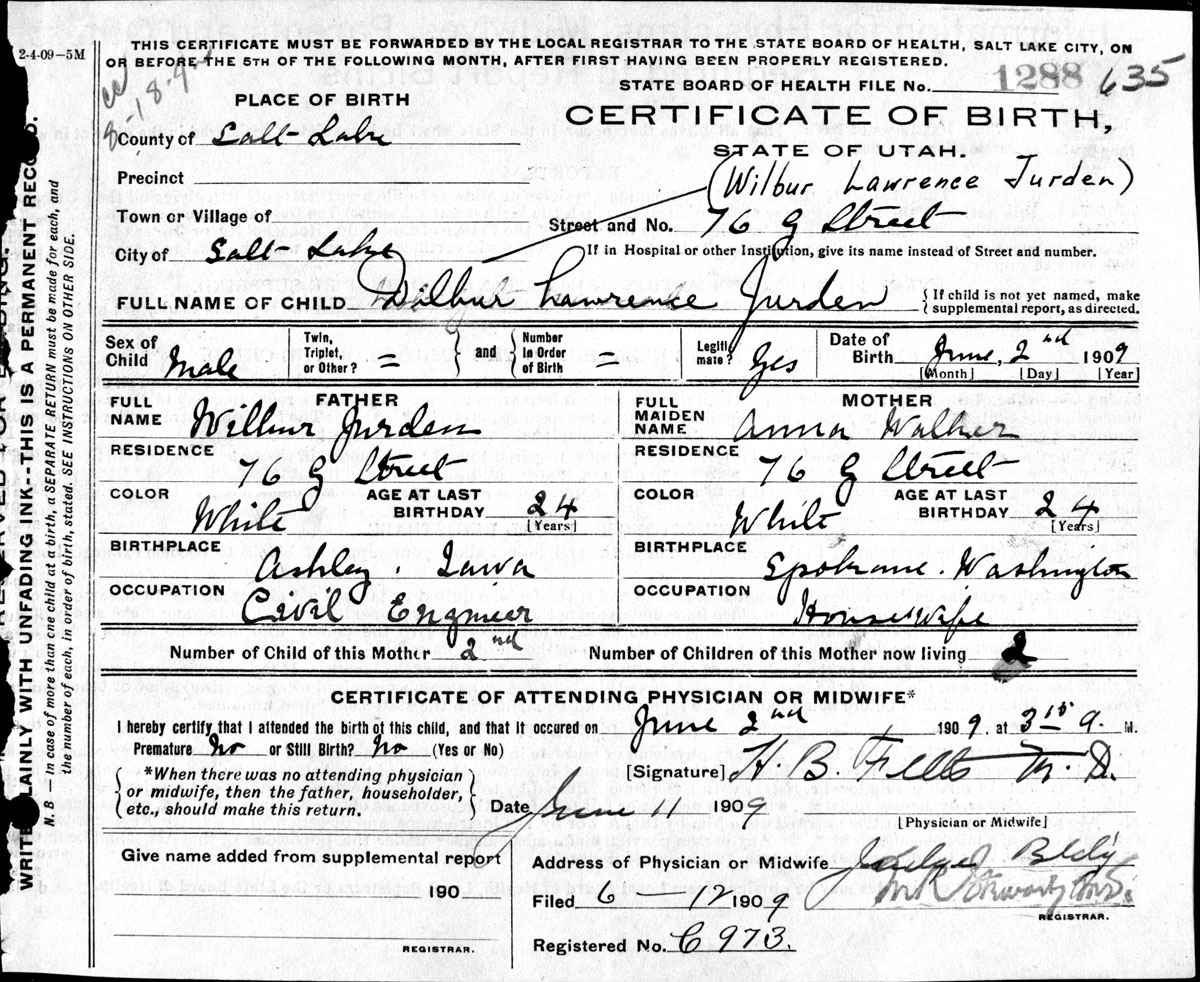 2-4-09—5M
THIS CERTIFICATE MUST BE FORWARDED BY THE LOCAL REGISTRAR TO THE STATE BOARD OF HEALTH, SALT LAKE CITY, ON
OR BEFORE THE 5TH OF THE FOLLOWING MONTH, AFTER FIRST HAVING BEEN PROPERLY REGISTERED.
STATE BOARD OF HEALTH FILE No. 1288 635
PLACE OF BIRTH
CERTIFICATE OF BIRTH,
STATE OF UTAH.
County of Salt Lake
(Wilbur Lawrence Jurden)
Precinct
Town or Village of
Street and No. 76 G Street
City of Salt Lake
If in Hospital or other Institution, give its name instead of Street and number.
FULL NAME OF CHILD Wilbur Lawrence Jurden
If child is not yet named, make
supplemental report, as directed.
Sex of Child Male
Twin, Triplet, or Other? =
and
Number In Order of Birth =
Legitimate? Yes
Date of Birth June, 2nd 1909
[Month] [Day] [Year]
FATHER
FULL NAME Wilbur Jurden
RESIDENCE 76 G Street
COLOR White
AGE AT LAST BIRTHDAY 24
[Years]
BIRTHPLACE Ashley. Iowa
OCCUPATION Civil Engineer
MOTHER
FULL MAIDEN NAME Anna Walker
RESIDENCE 76 G Street
COLOR White
AGE AT LAST BIRTHDAY 24
[Years]
BIRTHPLACE Spokane. Washington
OCCUPATION House Wife
Number of Child of this Mother 2nd
Number of Children of this Mother now living 2
CERTIFICATE OF ATTENDING PHYSICIAN OR MIDWIFE*
I hereby certify that I attended the birth of this child, and that it occurred on June 2nd 1909, at 3 15 a. M.
Premature No or Still Birth? No (Yes or No)
*When there was no attending physician
or midwife, then the father, householder,
etc., should make this return.
[Signature] H. B. Felts M. D.
Date June 11 1909
[Physician or Midwife]
Give name added from supplemental report
190
REGISTRAR.
Address of Physician or Midwife Judge Bldg
Filed 6—12 1909
REGISTRAR.
Registered No. C 973.
WRITE PLAINLY WITH UNFADING INK--THIS IS A PERMANENT RECORD.
N. B — In case of more than one child at a birth, a SEPARATE RETURN must be made for each, and
the number of each, in order of birth, stated. SEE INSTRUCTIONS ON OTHER SIDE.